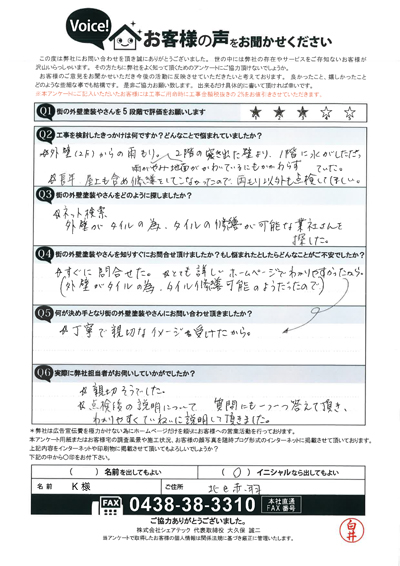 Voice!
お客様の声をお聞かせください
この度は弊社にお問い合わせを頂き誠にありがとうございました。世の中には弊社の存在やサービスをご存知ないお客様が
沢山いらっしゃいます。その方たちに弊社をよく知って頂くためのアンケートにご協力頂けないでしょうか。
お客様のご意見をお聞かせいただき今後の活動に反映させていただきたいと考えております。良かったこと、嬉しかったこと
どのような些細な事でも結構です。是非ご協力お願い致します。出来るだけ具体的に書いて頂ければ幸いです。
Q1 街の外壁塗装やさんを5段階で評価をお願いします
★ ★ ★ ☆ ☆
Q2 工事を検討したきっかけは何ですか?どんなことで悩まれていましたか?
外壁(2F)からの雨もり。2階の突き出た壁より、1階に水がしたたっ
ていた。
Q3 街の外壁塗装やさんをどのように探しましたか?
ネット検索
外壁がタイルの為、タイルの修繕が可能な業者さんを
探した。
Q4 街の外壁塗装やさんを知りすぐにお問合せ頂けましたか?もし悩まれたとしたらどんなことがご不安でしたか?
すぐに問合せた。とても詳しいホームページでわかりやすかったから。
(外壁がタイルの為、タイル修繕可能のようだったので)
Q5 何が決め手となり街の外壁塗装やさんにお問い合わせ頂きましたか?
丁寧で親切なイメージを受けたから。
Q6 実際に弊社担当者がお伺いしていかがでしたか?
親切そうでした。
点検後の説明について、質問にも一つ一つ答えて頂き、
わかりやすくていねいに説明して頂きました。
※弊社は広告宣伝費を極力かけない為にホームページだけを頼りにお客様への営業活動を行っております。
本アンケート用紙またはお客様宅の調査風景や施工状況、お客様の顔写真を随時ブログ形式のインターネットに掲載させて頂いております。
上記内容をインターネットや印刷物に掲載させて頂いてもよろしいでしょうか?
下記の中から〇印をお付け下さい。
( )名前を出してもよい
(〇)イニシャルなら出してもよい
名前 K 様
ご住所 北区赤羽
FAX 0438-38-3310 本社直通 FAX番号
ご協力ありがとうございました。
株式会社シェアテック 代表取締役 大久保 誠二
当アンケートで取得したお客様の個人情報は関係法規に基づき厳正に管理いたします。
白井